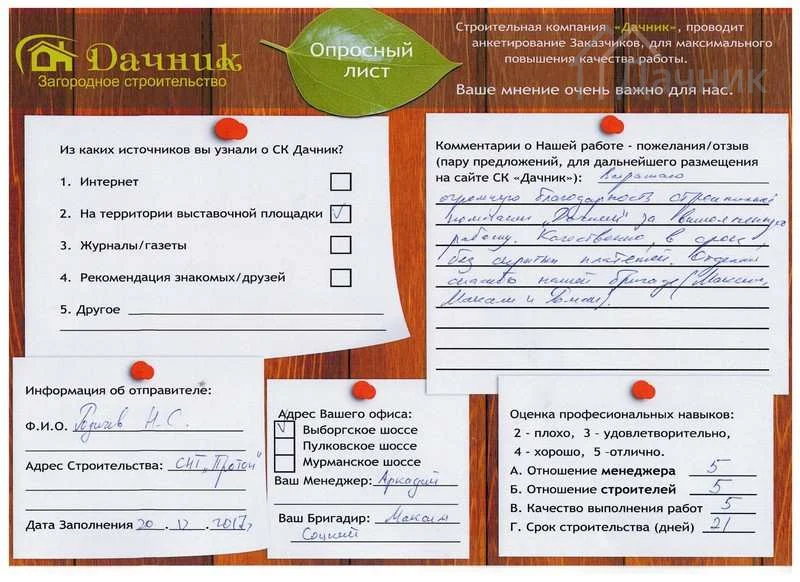 Дачник
Загородное строительство
Опросный
лист
Строительная компания «Дачник», проводит
анкетирование Заказчиков, для максимального
повышения качества работы.
Ваше мнение очень важно для нас.
Дачник
Из каких источников вы узнали о СК Дачник?
1. Интернет
2. На территории выставочной площадки
3. Журналы/газеты
4. Рекомендация знакомых/друзей
5. Другое
Комментарии о Нашей работе - пожелания/отзыв
(пару предложений, для дальнейшего размещения
на сайте СК «Дачник»): Выражаю
огромную благодарность строительной
компании "Дачник" за выполненную
работу. Качественно, в срок,
без скрытых платежей. Отдельное
спасибо нашей бригаде (Максим,
Максим и Роман).
Информация об отправителе:
Ф.И.О. Н.С.
Адрес Строительства: СНТ "Протон"
Дата Заполнения 20 . 12 . 2017г
Адрес Вашего офиса:
Выборгское шоссе
Пулковское шоссе
Мурманское шоссе
Ваш Менеджер: Аркадий
Ваш Бригадир: Максим
Соцкий
Оценка професиональных навыков:
2 - плохо, 3 - удовлетворительно,
4 - хорошо, 5 -отлично.
А. Отношение менеджера 5
Б. Отношение строителей 5
В. Качество выполнения работ 5
Г. Срок строительства (дней) 21